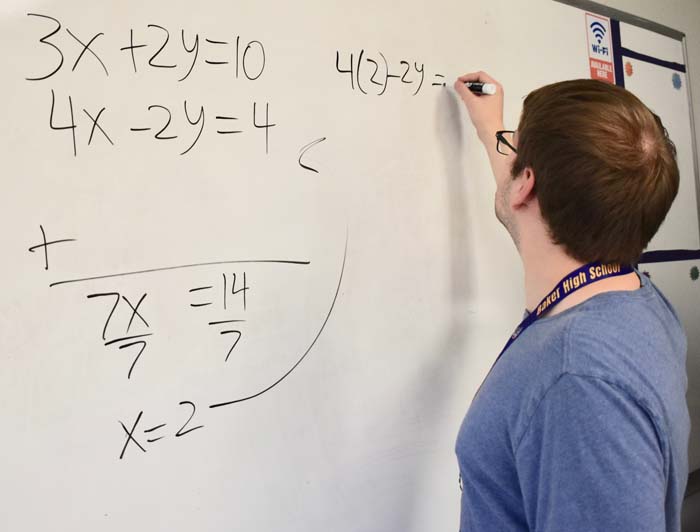 3x+2y=10
4x-2y=4
+
7x/7 =14/7
x=2
4(2)-2y=
Wi-Fi
AVAILABLE
HERE
Baker High School